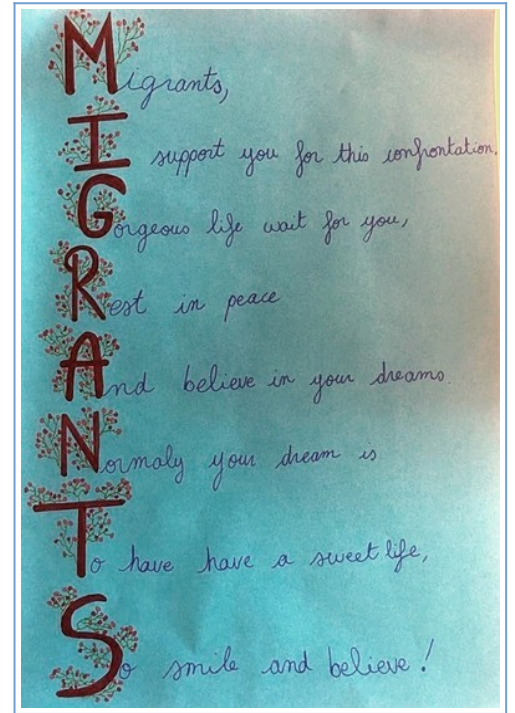 Migrants,
I support you for this confrontation.
Gorgeous life wait for you,
Rest in peace
And believe in your dreams.
Normaly your dream is
To have have a sweet life,
So smile and believe!